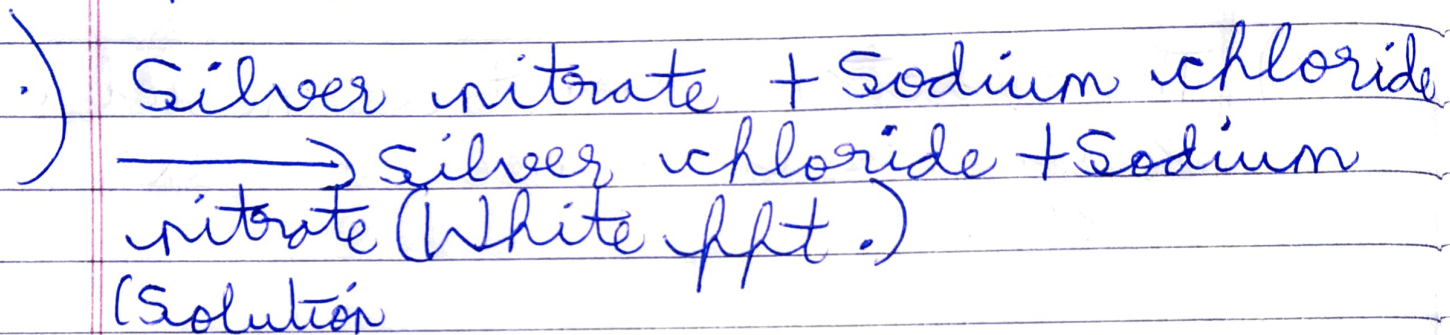 .) Silver nitrate + Sodium chloride
⟶ Silver chloride + Sodium
nitrate (White ppt.)
(Solution